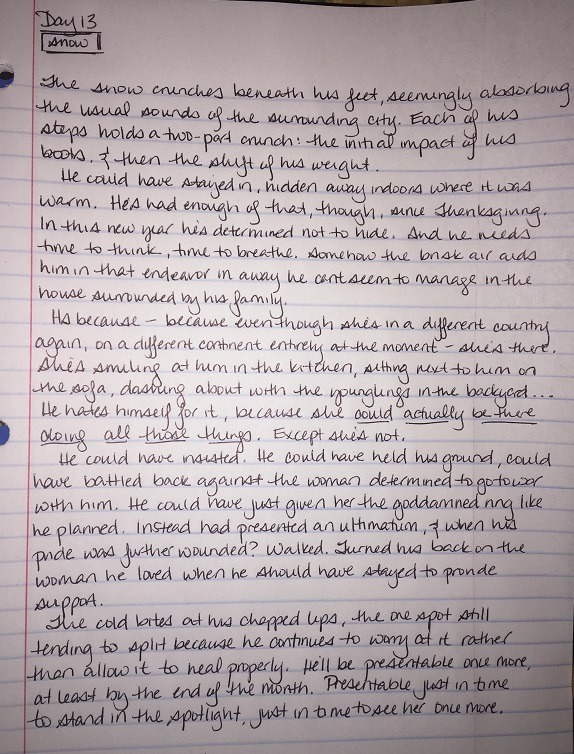 Day 13
snow
The snow crunches beneath his feet, seemingly absorbing
the usual sounds of the surrounding city. Each of his
steps holds a two-part crunch: the initial impact of his
boots. & then the shift of his weight.
He could have stayed in, hidden away indoors where it was
warm. He's had enough of that, though, since Thanksgiving.
In this new year he's determined not to hide. And he needs
time to think, time to breathe. Somehow the brisk air aids
him in that endeavor in a way he cant seem to manage in the
house surrounded by his family.
Its because - because even though she's in a different country
again, on a different continent entirely at the moment - she's there.
She's smiling at him in the kitchen, sitting next to him on
the sofa, dashing about with the younglings in the backyard...
He hates himself for it, because she could actually be there
doing all those things. Except she's not.
He could have insisted. He could have held his ground, could
have battled back against the woman determined to go to war
with him. He could have just given her the goddamned ring like
he planned. Instead had presented an ultimatum, & when his
pride was further wounded? Walked. Turned his back on the
woman he loved when he should have stayed to provide
support.
The cold bites at his chapped lips, the one spot still
tending to split because he continues to worry at it rather
than allow it to heal properly. He'll be presentable once more,
at least by the end of the month. Presentable just in time
to stand in the spotlight, just in time to see her once more.